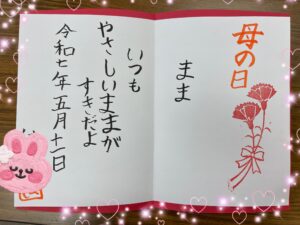 母の日
まま
いつも
やさしいままが
すきだよ
令和七年五月十一日